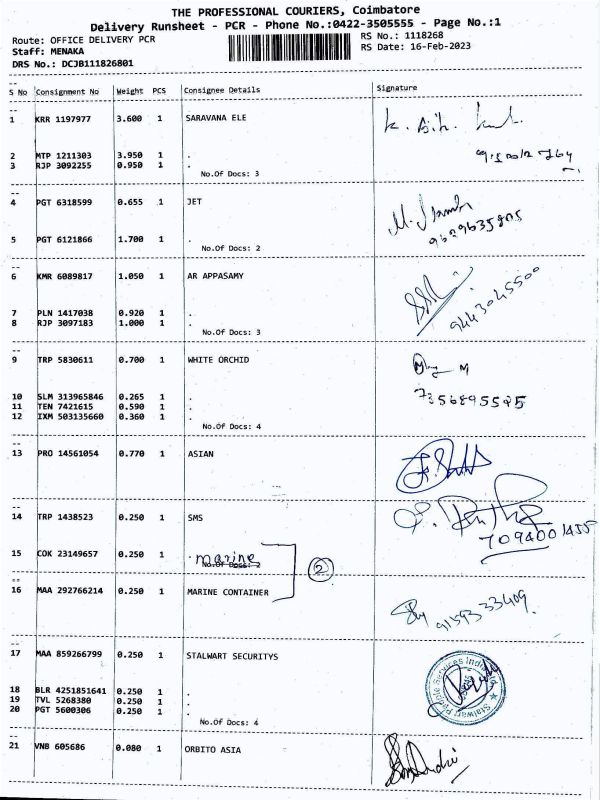 THE PROFESSIONAL COURIERS, Coimbatore
Delivery Runsheet - PCR - Phone No.:0422-3505555 - Page No.:1
Route: OFFICE DELIVERY PCR RS No.: 1118268
Staff: MENAKA RS Date: 16-Feb-2023
DRS No.: DCJB111826801
S No Consignment No Weight PCS Consignee Details Signature
1 KRR 1197977 3.600 1 SARAVANA ELE
2 MTP 1211303 3.950 1 .
3 RJP 3092255 0.950 1 .
No.Of Docs: 3
4 PGT 6318599 0.655 1 JET
9629635805
5 PGT 6121866 1.700 1 .
No.Of Docs: 2
6 KMR 6089817 1.050 1 AR APPASAMY
9443045500
7 PLN 1417038 0.920 1 .
8 RJP 3097183 1.000 1 .
No.Of Docs: 3
9 TRP 5830611 0.700 1 WHITE ORCHID
10 SLM 313965846 0.265 1 .
7356895585
11 TEN 7421615 0.590 1 .
12 IXM 503135660 0.360 1 .
No.Of Docs: 4
13 PRO 14561054 0.770 1 ASIAN
14 TRP 1438523 0.250 1 SMS
7094001455
15 COK 23149657 0.250 1 . marine
No.Of Docs: 2
2
16 MAA 292766214 0.250 1 MARINE CONTAINER
9159333409
17 MAA 859266799 0.250 1 STALWART SECURITYS
18 BLR 4251851641 0.250 1 .
19 TVL 5268380 0.250 1 .
20 PGT 5600306 0.250 1 .
No.Of Docs: 4
Stalwart People Services India
21 VNB 605686 0.080 1 ORBITO ASIA